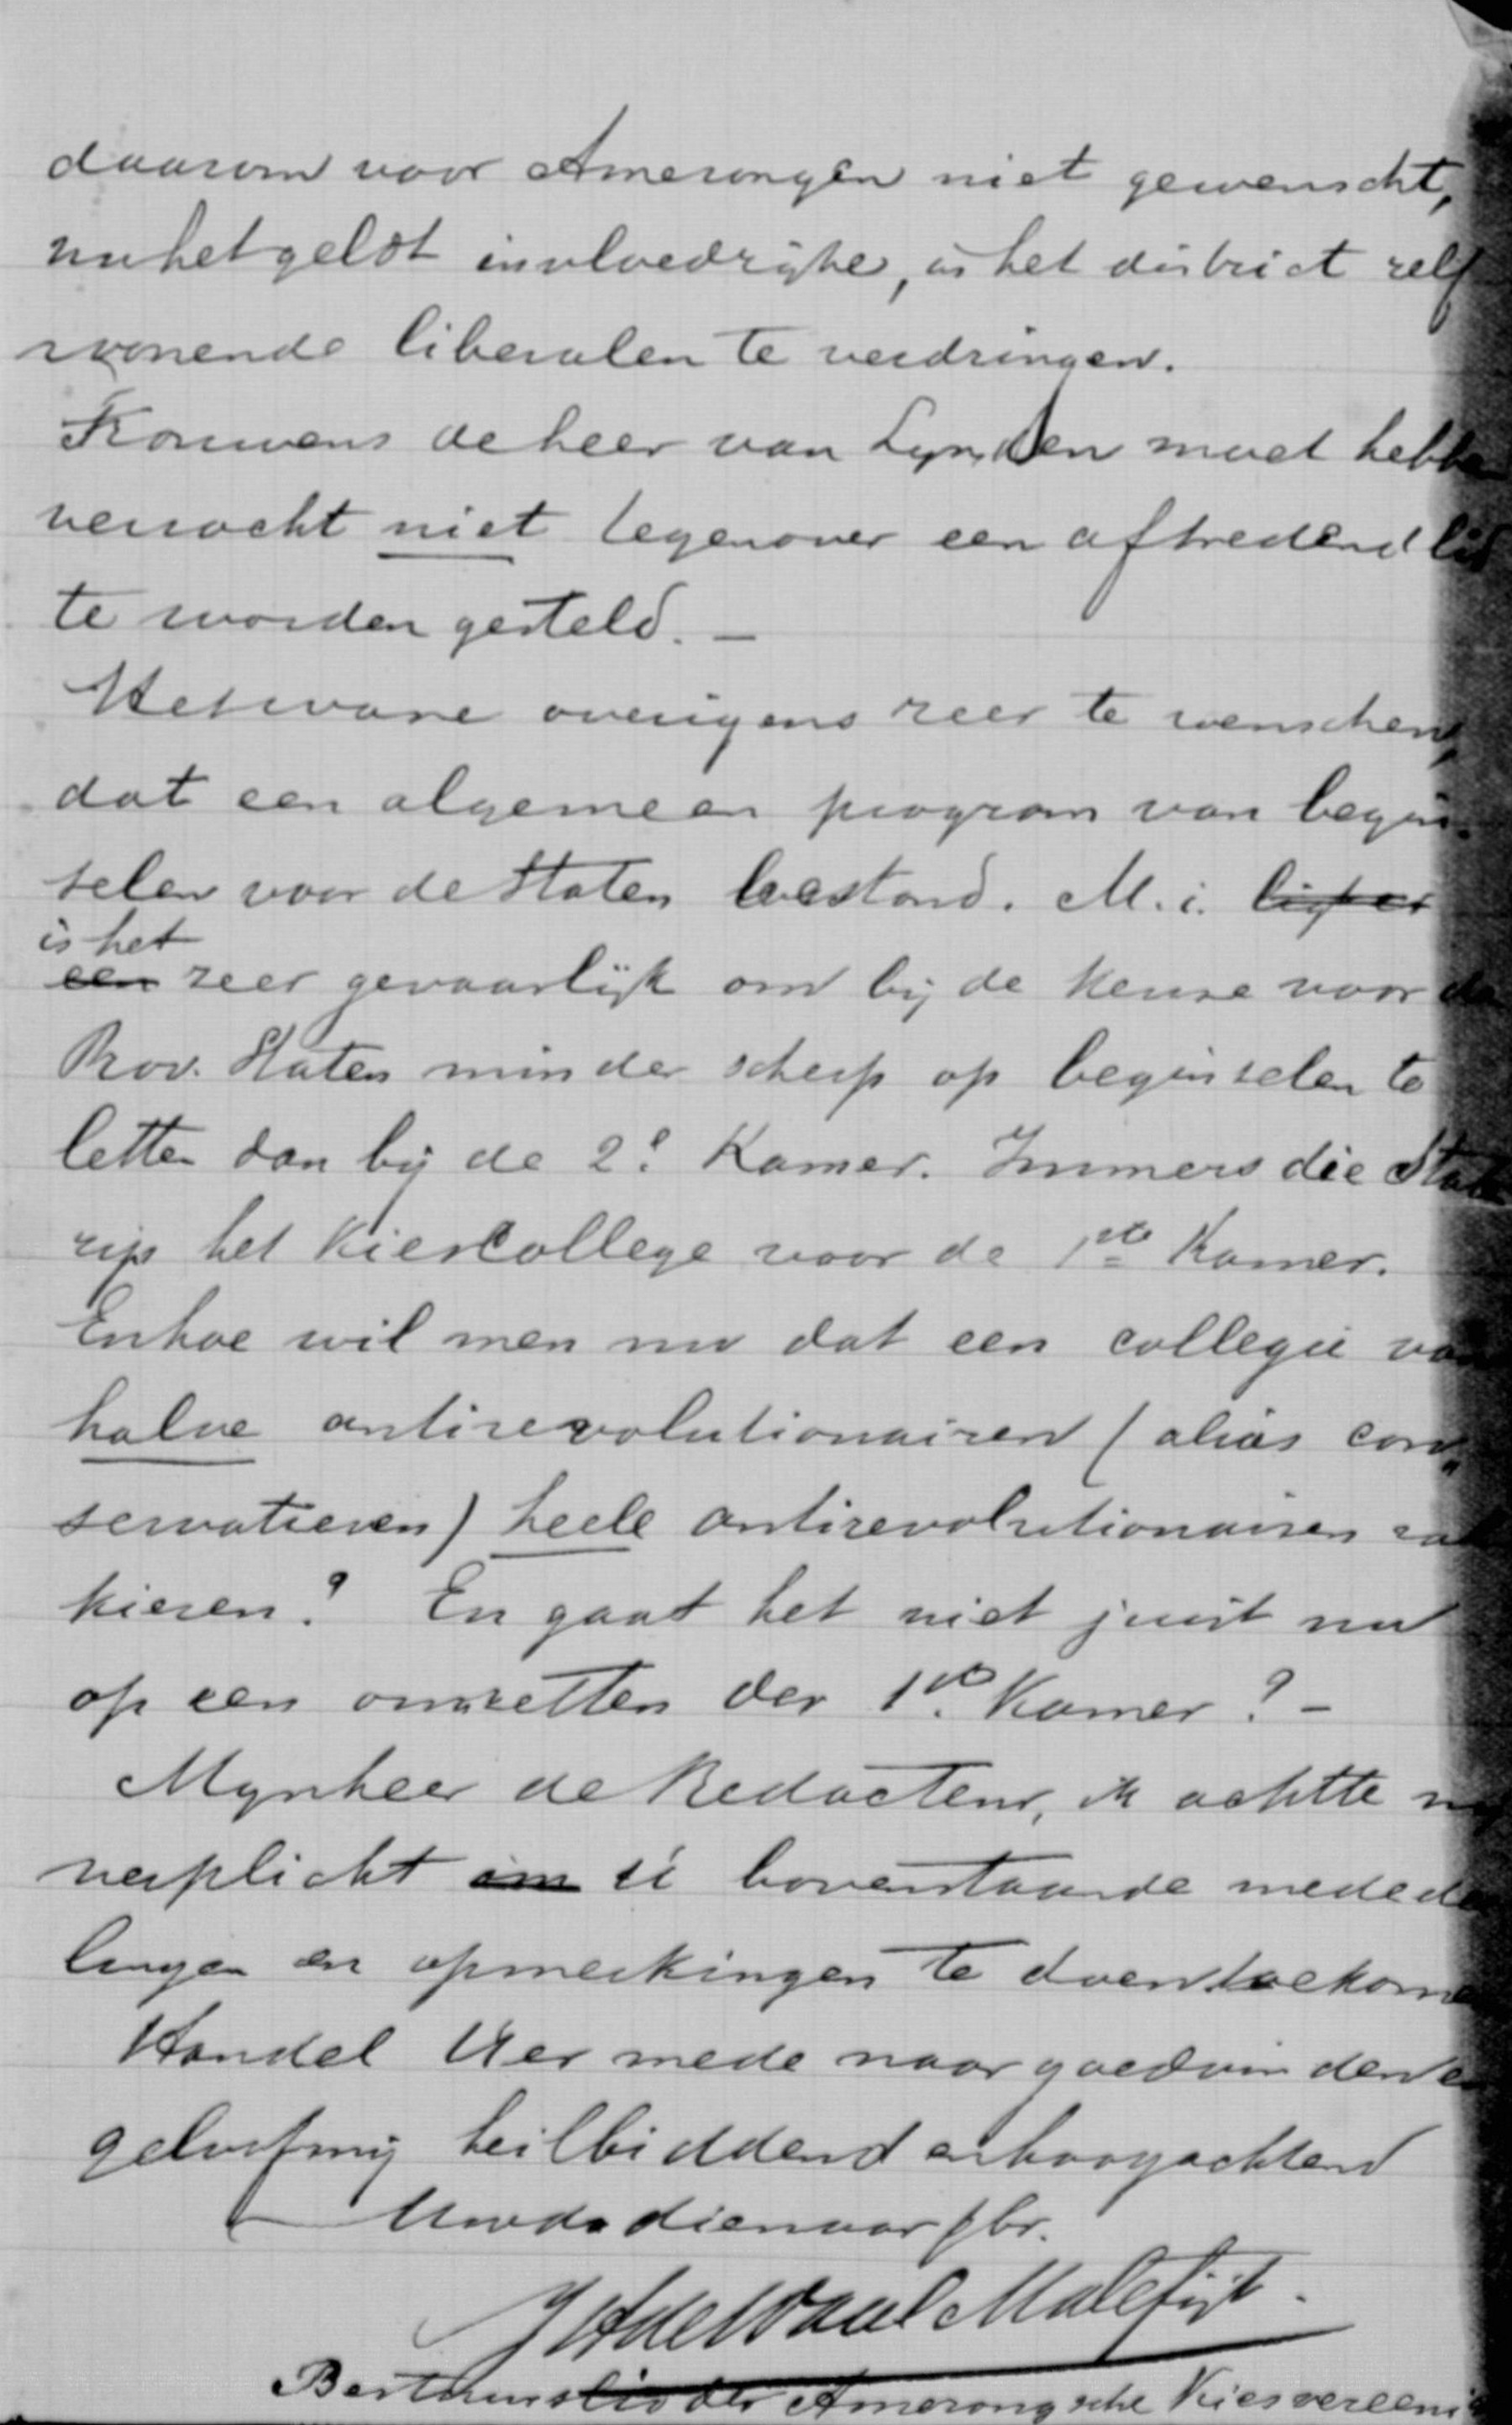 daarom voor Amerongen niet gewenscht,
nu het geldt invloedrijke, in het district zelf
wonende liberalen te verdringen.
Trouwens de heer van Lynden moet hebben
verzocht niet tegenover een aftredend lid
te worden gesteld. —
Het ware overigens zeer te wenschen,
dat een algemeen program van begin-
selen voor de Staten bestond. M.i. ligt er
is het
een zeer gevaarlijk om bij de keuze voor de
Prov. Staten minder scherp op beginselen te
letten dan bij de 2e Kamer. Immers die Staten
zijn het Kiescollege voor de 1ste Kamer.
En hoe wil men nu dat een collegie van
halve antirevolutionairen (alias con-
servatieven) heele antirevolutionairen zal
kiezen? En gaat het niet juist nu
op een omzetten der 1ste Kamer? —
Mynheer de Redacteur, ik achtte mij
verplicht om U bovenstaande mededee
lingen en opmerkingen te doen toekomen
Handel U er mede naar goedvinden en
geloof mij heilbiddend en hoogachtend
Uw dw dienaar & br.
J H de Waal Malefijt.
Bestuurslid der Amerongsche Kiesvereeni